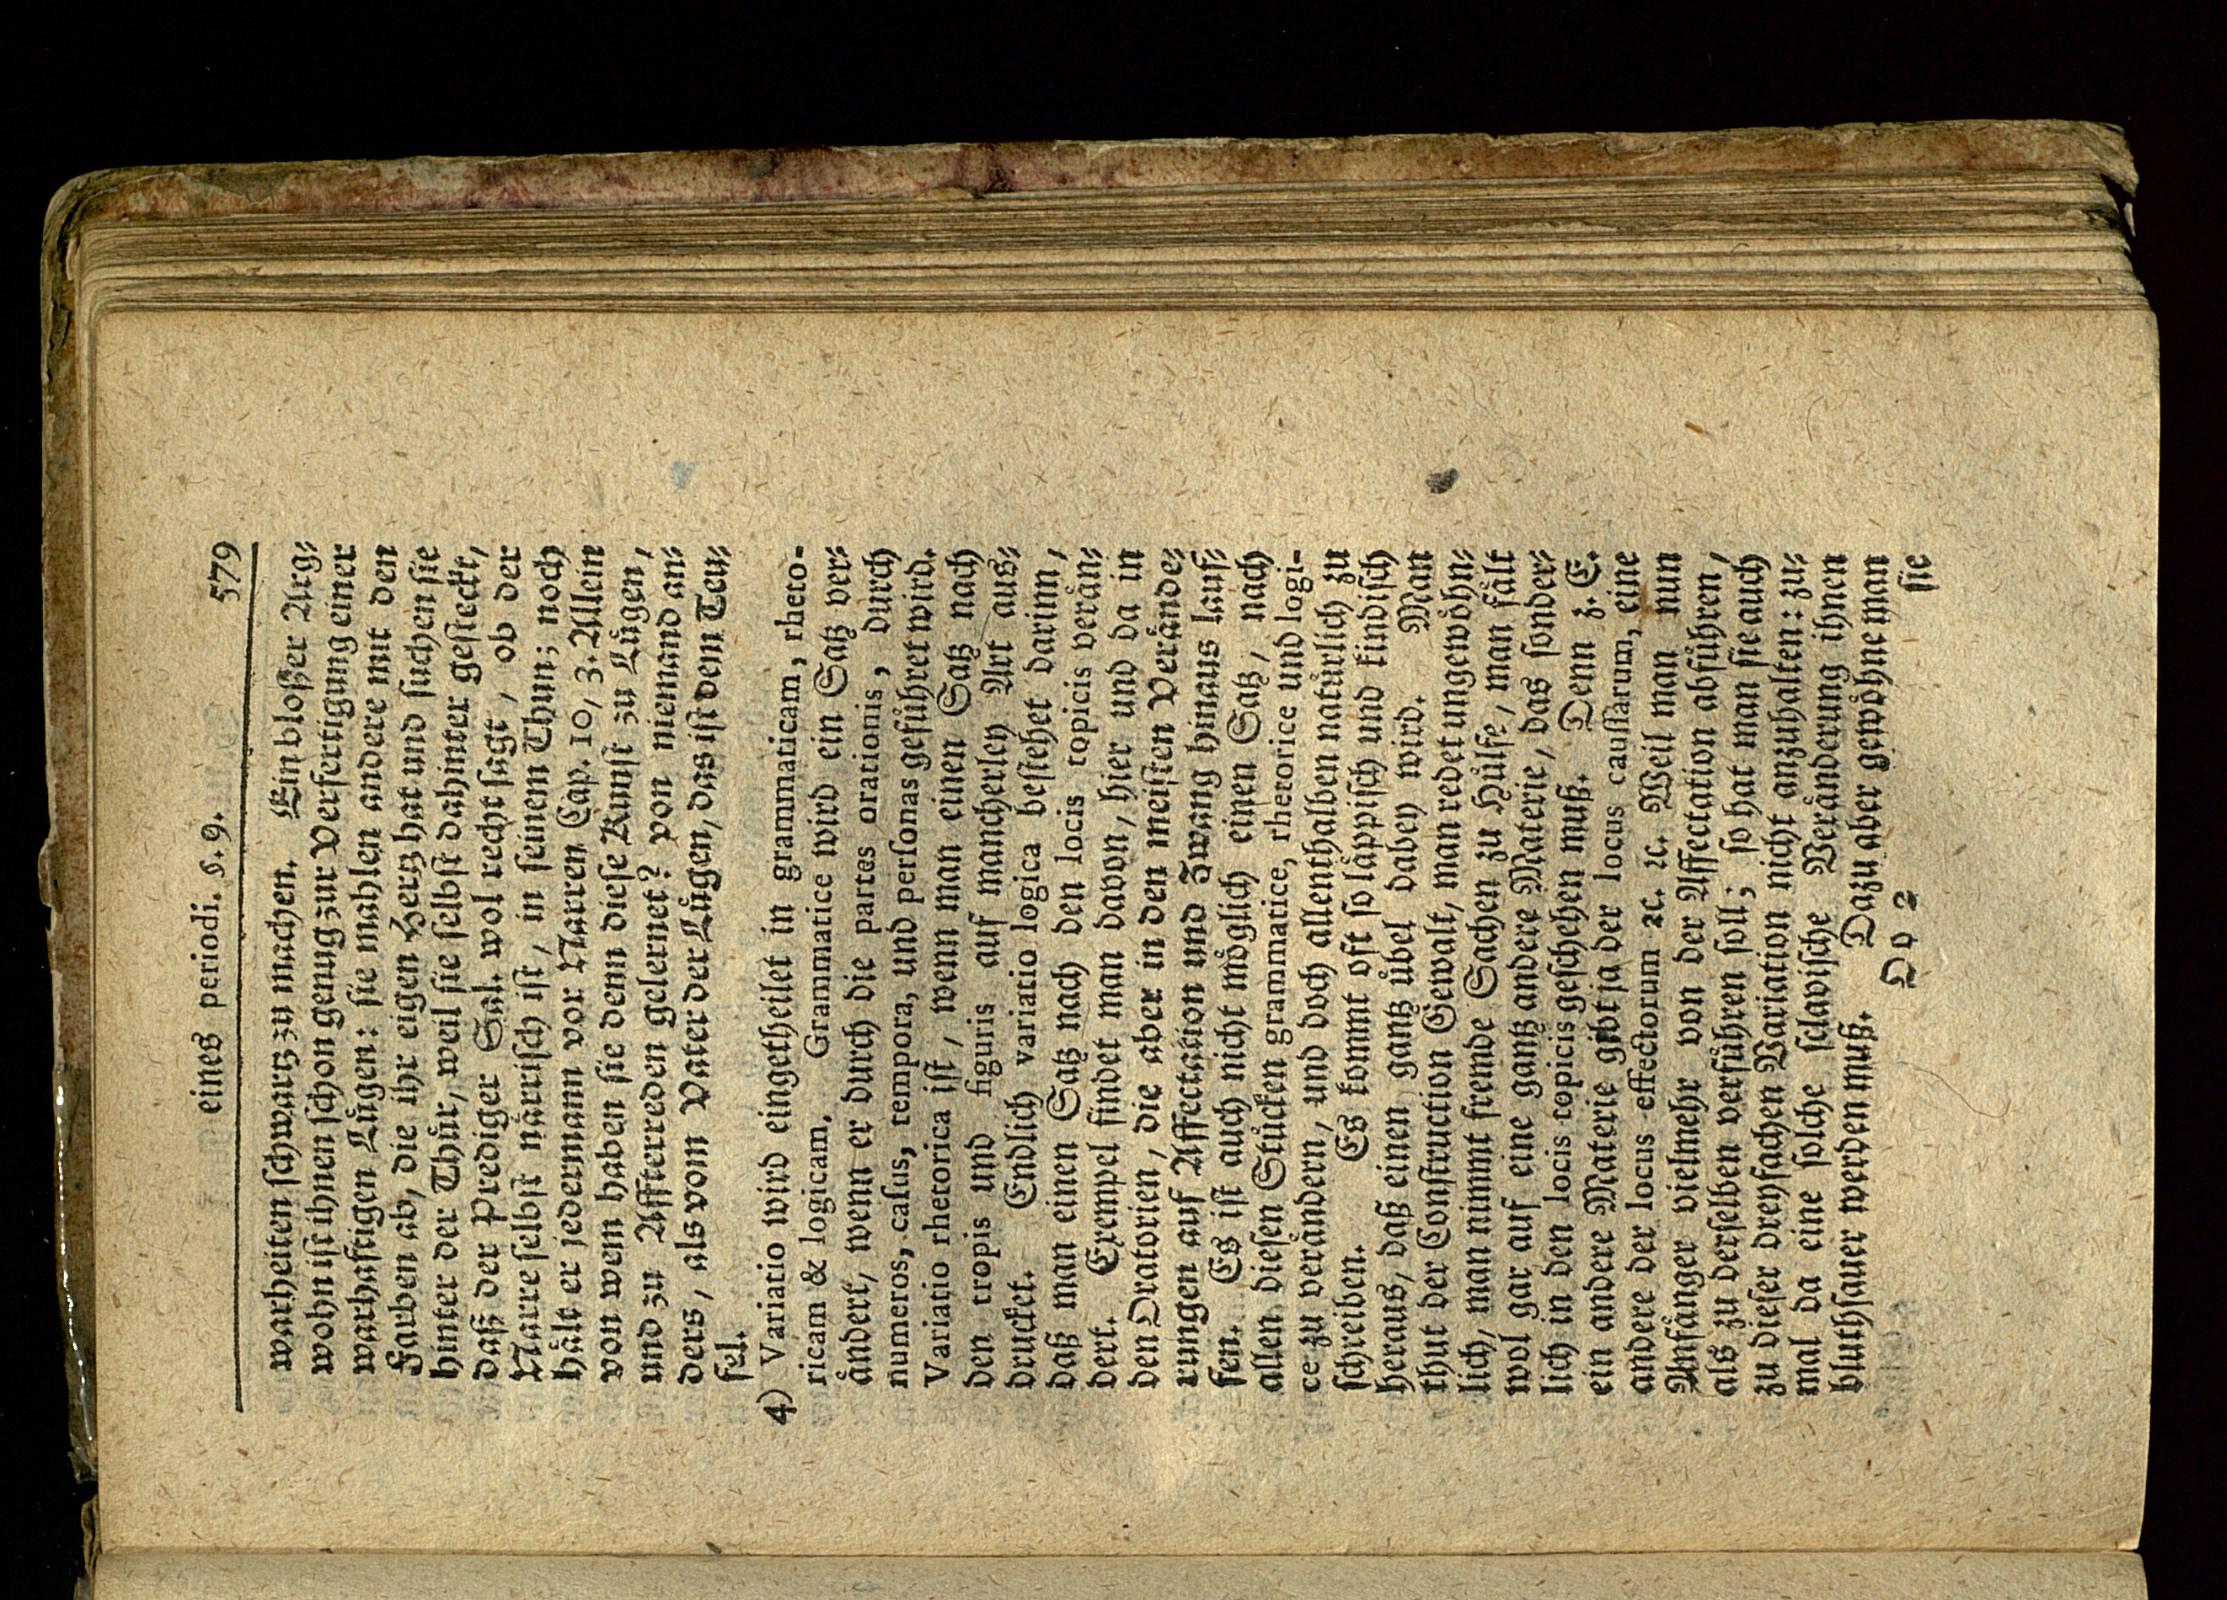 eines periodi. §. 9. 579
warheiten schwartz zu machen. Ein bloßer Arg⸗
wohn ist ihnen schon genug zur Verfertigung einer
warhaftigen Lügen: sie mahlen andere mit den
Farben ab, die ihr eigen Hertz hat und suchen sie
hinter der Thür, weil sie selbst dahinter gesteckt,
daß der Prediger Sal. wol recht sagt, ob der
Narre selbst närrisch ist, in seinem Thun; noch
hält er jedermann vor Narren Cap. 10, 3. Allein
von wem haben sie denn diese Kunst zu Lügen,
und zu Affterreden gelernet? von niemand an⸗
ders, als vom Vater der Lügen, das ist dem Teu⸗
fel.
4) Variatio wird eingetheilet in grammaticam, rheto-
ricam & logicam. Grammatice wird ein Satz ver⸗
ändert, wenn er durch die partes orationis, durch
numeros, casus, tempora, und personas geführet wird.
Variatio rhetorica ist, wenn man einen Satz nach
den tropis und figuris auf mancherley Art aus⸗
drucket. Endlich variatio logica bestehet darinn,
daß man einen Satz nach den locis topicis verän⸗
dert. Exempel findet man davon, hier und da in
den Oratorien, die aber in den meisten Verände⸗
rungen auf Affectation und Zwang hinaus lauf⸗
fen. Es ist auch nicht möglich einen Satz, nach
allen diesen Stücken grammatice, rhetorice und logi-
ce zu verändern, und doch allenthalben natürlich zu
schreiben. Es kommt oft so läppisch und kindisch
heraus, daß einen gantz übel dabey wird. Man
thut der Construction Gewalt, man redet ungewöhn⸗
lich, man nimmt fremde Sachen zu Hülfe, man fält
wol gar auf eine gantz andere Materie, das sonder⸗
lich in den locis topicis geschehen muß. Denn z. E.
ein andere Materie gibt ja der locus caussarum, eine
andere der locus effectorum ꝛc. ꝛc. Weil man nun
Anfänger vielmehr von der Affectation abführen,
als zu derselben verführen soll; so hat man sie auch
zu dieser dreyfachen Variation nicht anzuhalten: zu⸗
mal da eine solche sclavische Veränderung ihnen
bluthsauer werden muß. Dazu aber gewöhne man
Oo 2 sie